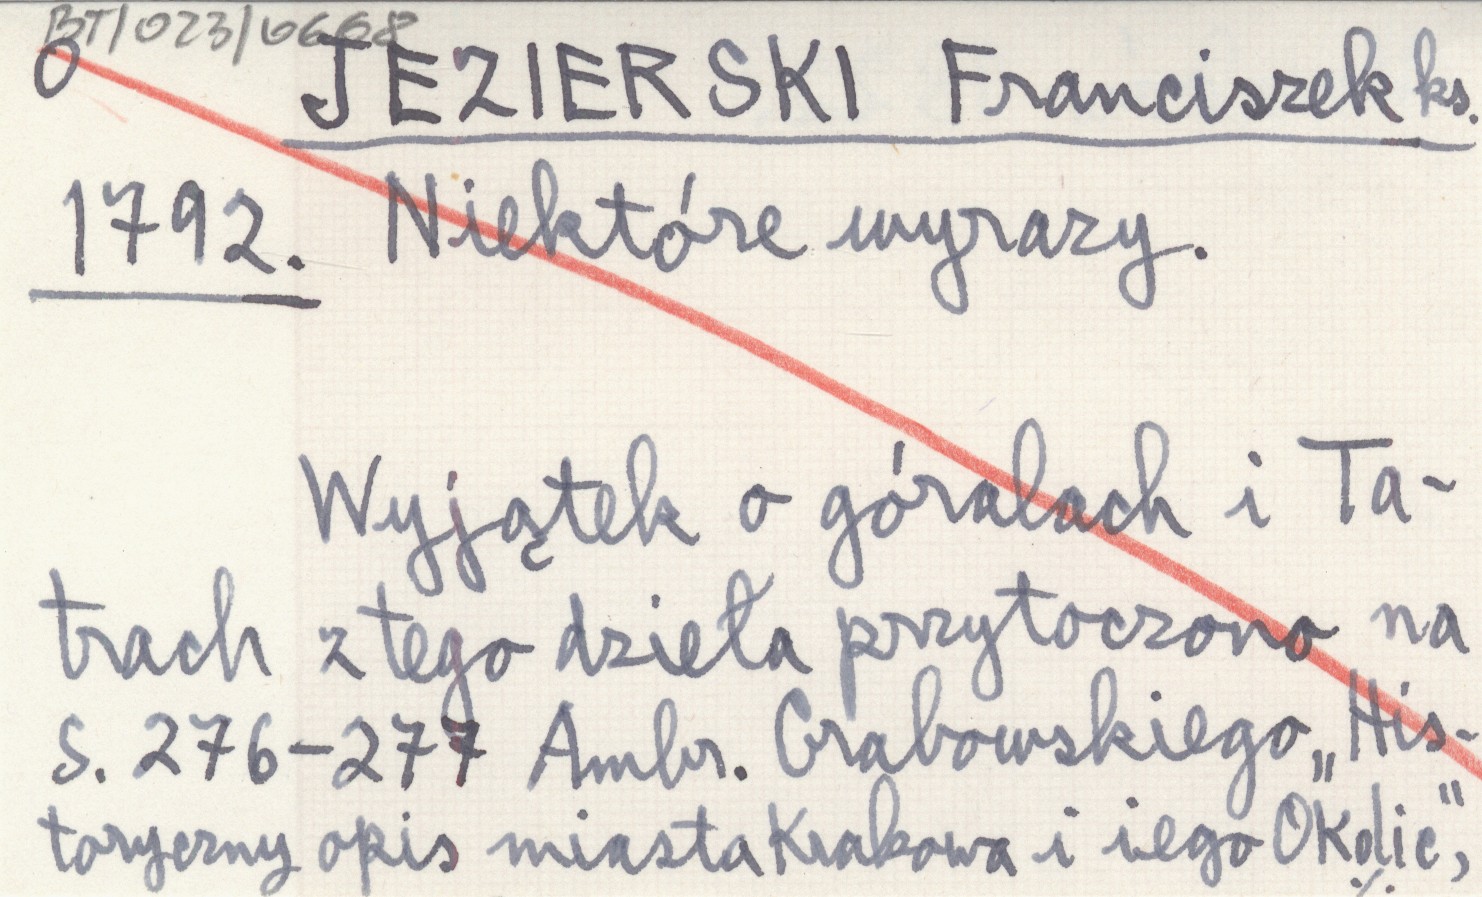 BT/023/0668
O JEZIERSKI Franciszek ks.
1792. Niektóre wyrazy.
Wyjątek o góralach i Ta-
trach z tego dzieła przytoczono na
S. 276-277 Ambr. Grabowskiego „His-
toryczny opis miasta Krakowa i iego Okolic",
./.